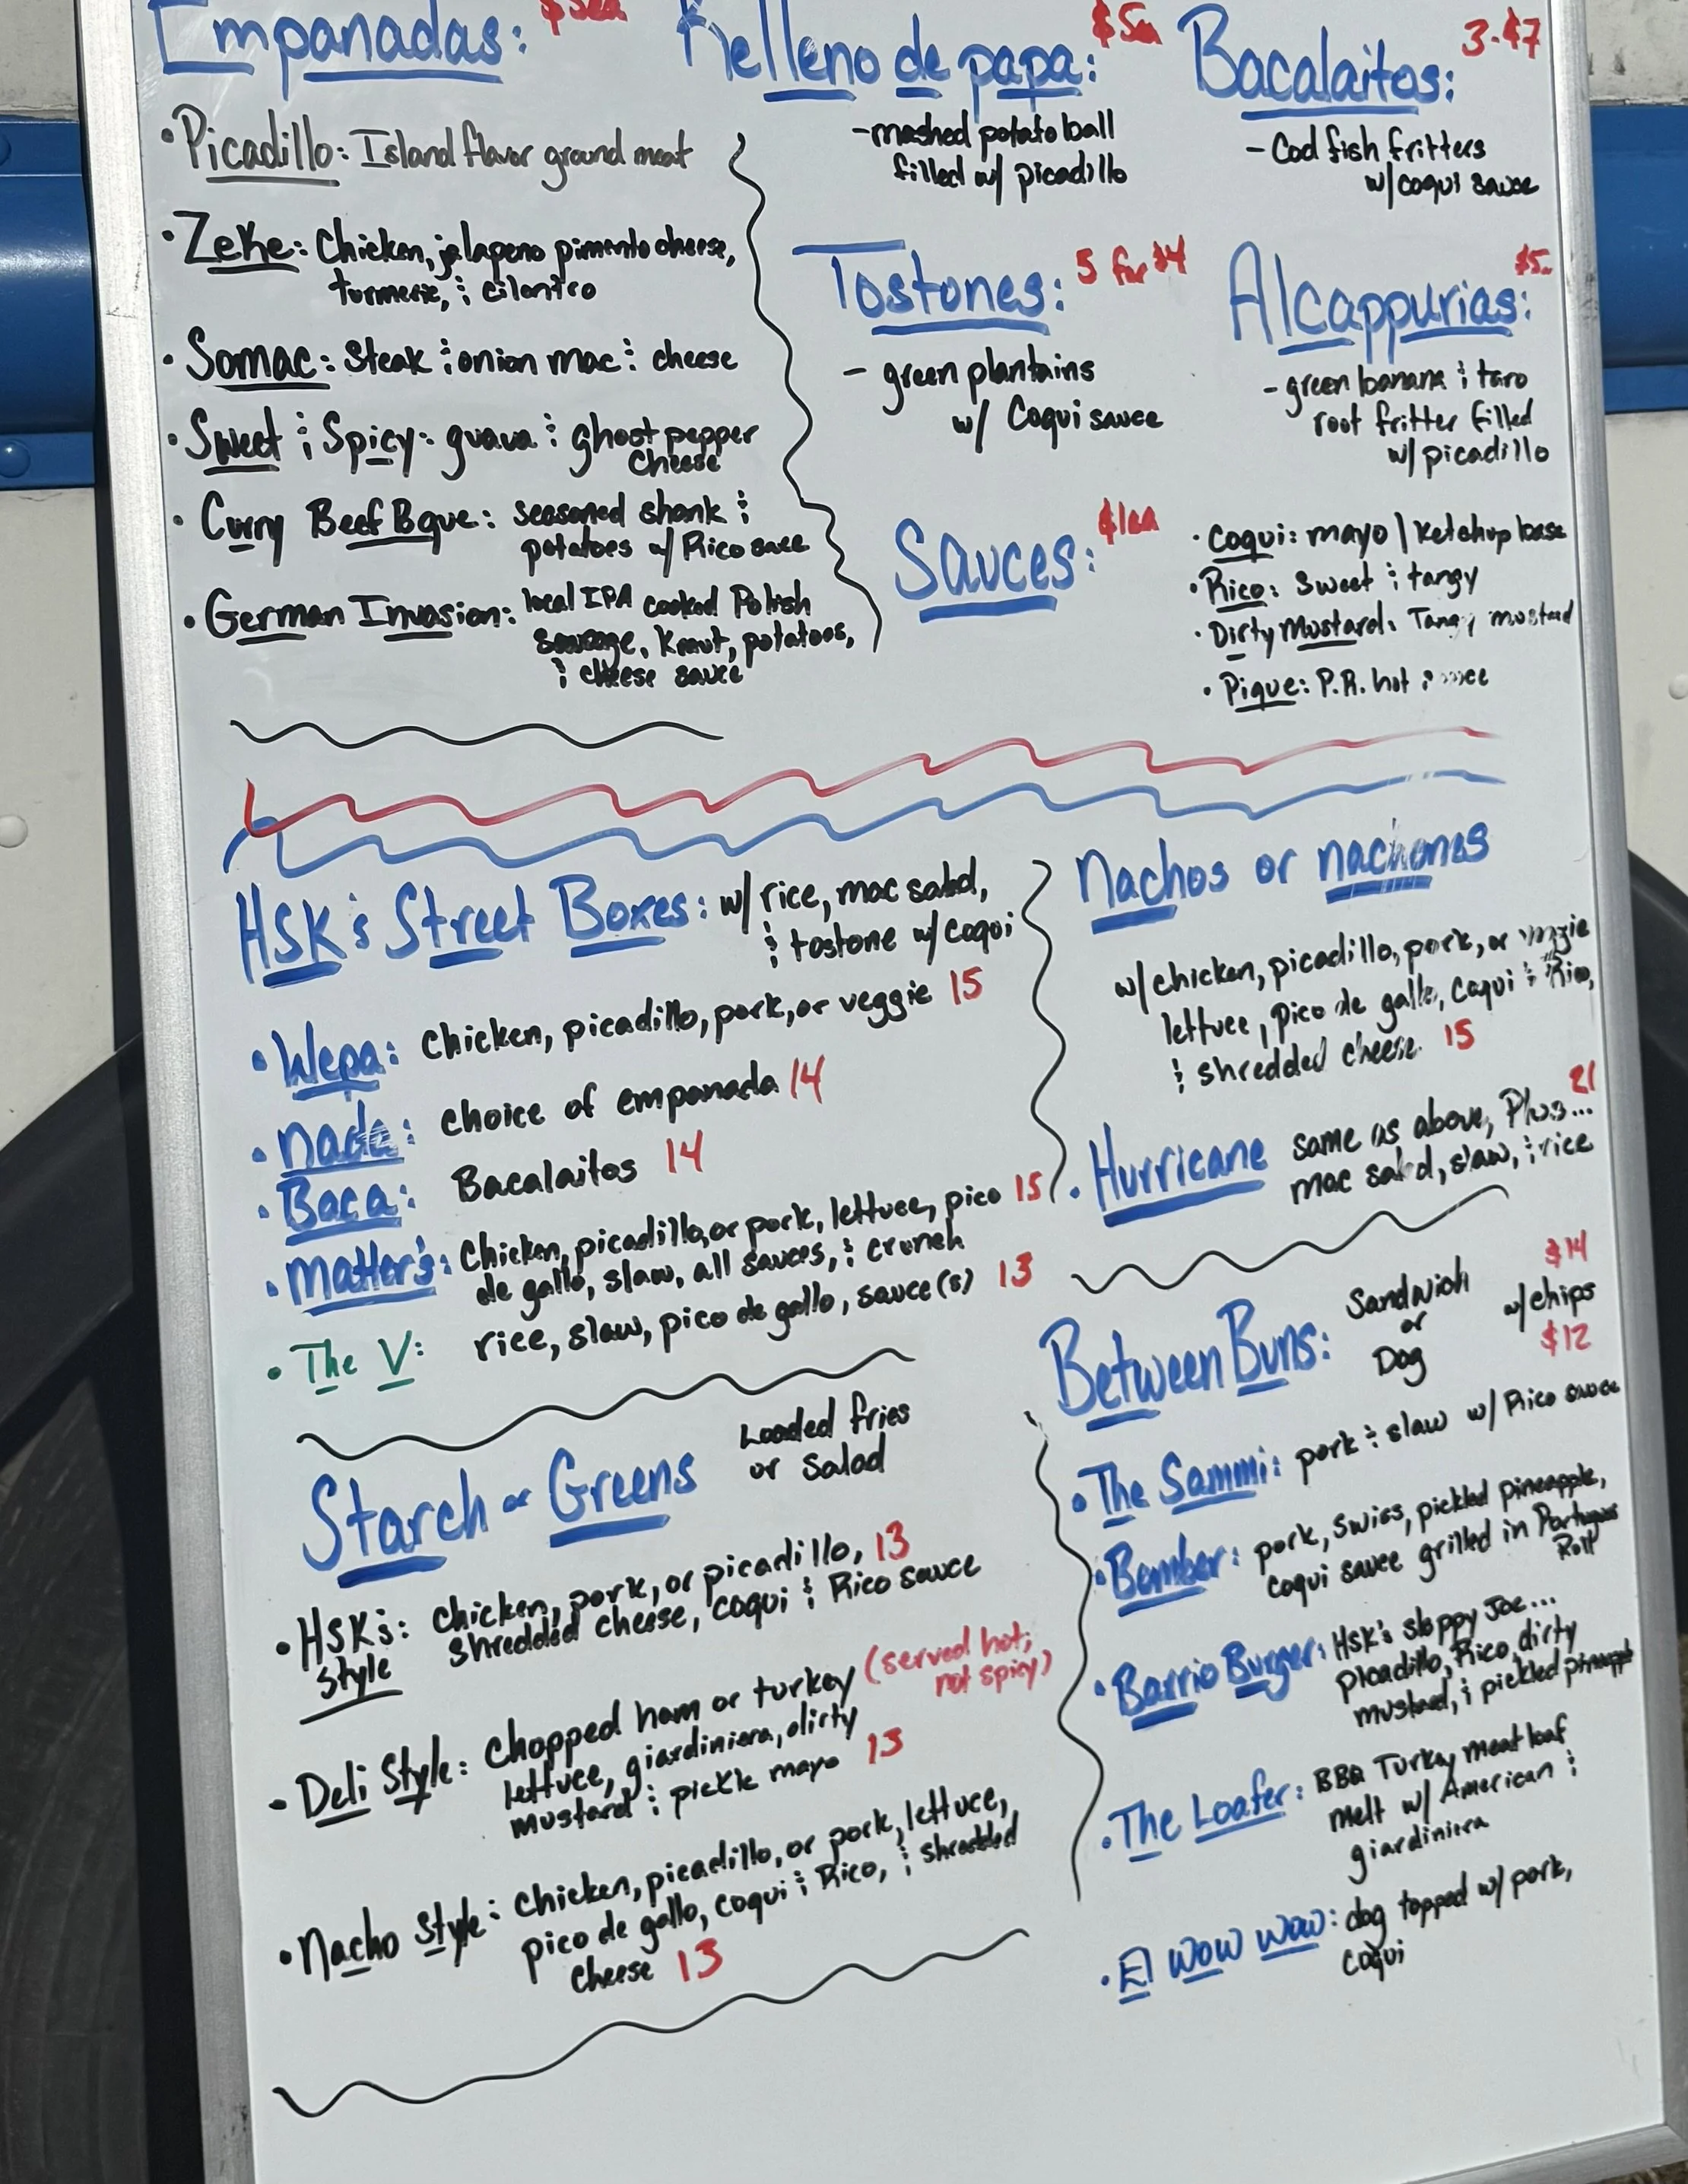 Empanadas: $5ea
• Picadillo: Island flavor ground meat
• Zeke: Chicken, jalapeno pimento cheese,
turmeric, & cilantro
• Somac: Steak & onion mac & cheese
• Sweet & Spicy: guava & ghost pepper
cheese
• Curry Beef Bque: seasoned shank &
potatoes w/ Rico sauce
• German Invasion: local IPA cooked Polish
sausage, Kraut, potatoes,
& cheese sauce
Relleno de papa: $5ea
- mashed potato ball
filled w/ picadillo
Bacalaitos: 3-$7
- Cod fish fritters
w/ coqui sauce
Tostones: 5 for $4
- green plantains
w/ Coqui sauce
Alcappurias: $5
- green banana & taro
root fritter filled
w/ picadillo
Sauces: $1ea
• Coqui: mayo / Ketchup base
• Rico: Sweet & tangy
• Dirty Mustard: Tangy mustard
• Pique: P.R. hot sauce
HSK's Street Boxes: w/ rice, mac salad,
& tostone w/ Coqui
• Wepa: Chicken, picadillo, pork, or veggie 15
• nada: choice of empanada 14
• Baca: Bacalaitos 14
• Matter's: Chicken, picadillo, or pork, lettuce, pico 15
de gallo, slaw, all sauces, & crunch
• The V: rice, slaw, pico de gallo, sauce(s) 13
Nachos or nachones
w/ chicken, picadillo, pork, or veggie
lettuce, pico de gallo, Coqui & Rico,
& shredded cheese. 15
• Hurricane same as above, Plus... 21
mac salad, slaw, & rice
Starch or Greens Loaded fries
or Salad
• HSK's: Chicken, pork, or picadillo, 13
Style shredded cheese, coqui & Rico sauce
- Deli Style: Chopped ham or turkey (served hot;
not spicy)
lettuce, giardiniera, dirty
mustard & pickle mayo 13
• Nacho Style: Chicken, picadillo, or pork, lettuce,
pico de gallo, coqui & Rico, & shredded
cheese 13
Between Buns: Sandwich $14
or w/ chips
Dog $12
• The Sammi: pork & slaw w/ Rico sauce
• Bomber: pork, swiss, pickled pineapple,
coqui sauce grilled in
Roll
• Barrio Burger: HSK's sloppy Joe...
Picadillo, Rico, dirty
mustard, & pickled pineapple
• The Loafer: BBQ Turkey meat loaf
melt w/ American &
giardiniera
• El Wow Wow: dog topped w/ pork,
coqui